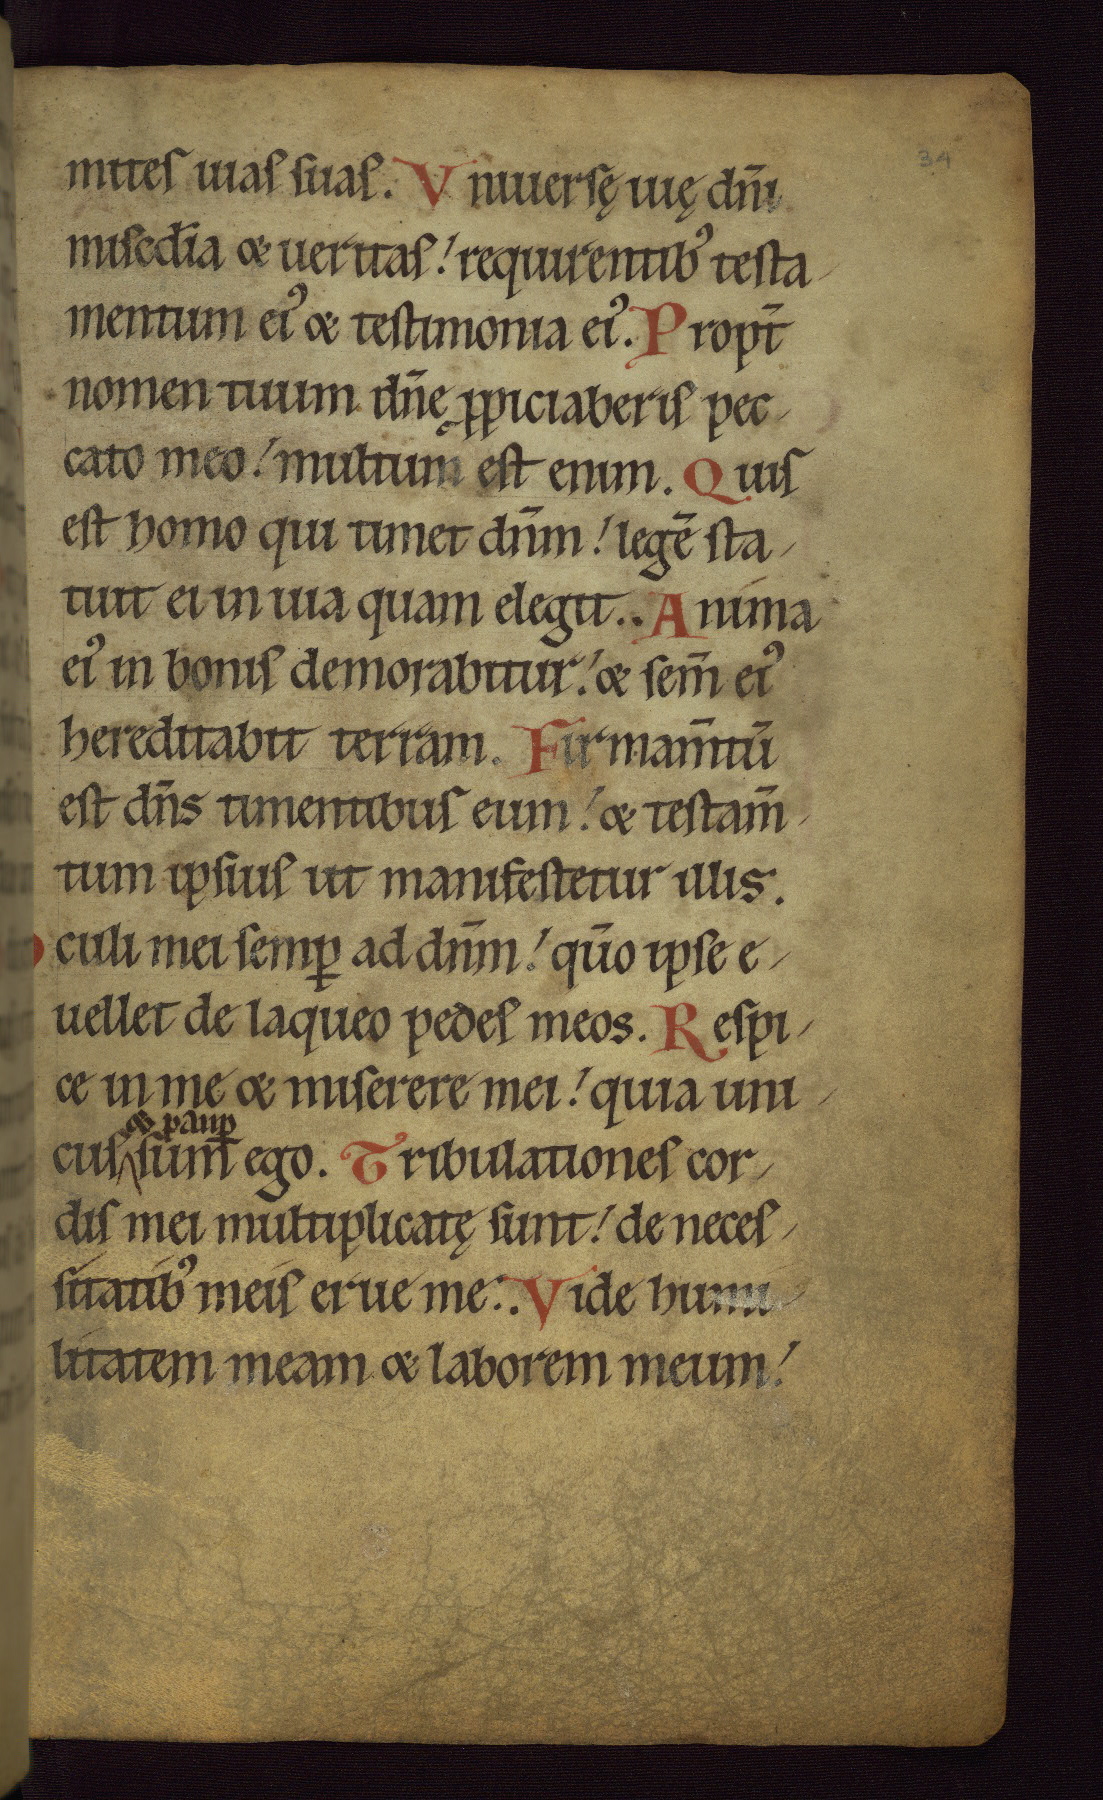 34
mites uias suas. Vniuersę uię dn̄i
misc̄dia & ueritas! requirentib᾿ testa-
mentum ei᾿ & testimonia ei᾿. Propt̄
nomen tuum dn̄e ꝓpiciaberis pec-
cato meo! multum est enim. Quis
est homo qui timet dn̄m! legē sta-
tuit ei in uia quam elegit.. Anima
ei᾿ in bonis demorabitur! & sem̄ ei᾿
hereditabit terram. Firmam̄tū
est dn̄s timentibus eum! & testam̄-
tum ipsius ut manifestetur illis.
Oculi mei semꝑ ad dn̄m! qūo ipse e-
uellet de laqueo pedes meos. Respi-
ce in me & miserere mei! quia uni-
& pauꝑ
cus sum ego. Tribulationes cor-
dis mei multiplicatę sunt! de neces-
sitatib᾿ meis erue me.. Vide humi-
litatem meam & laborem meum!